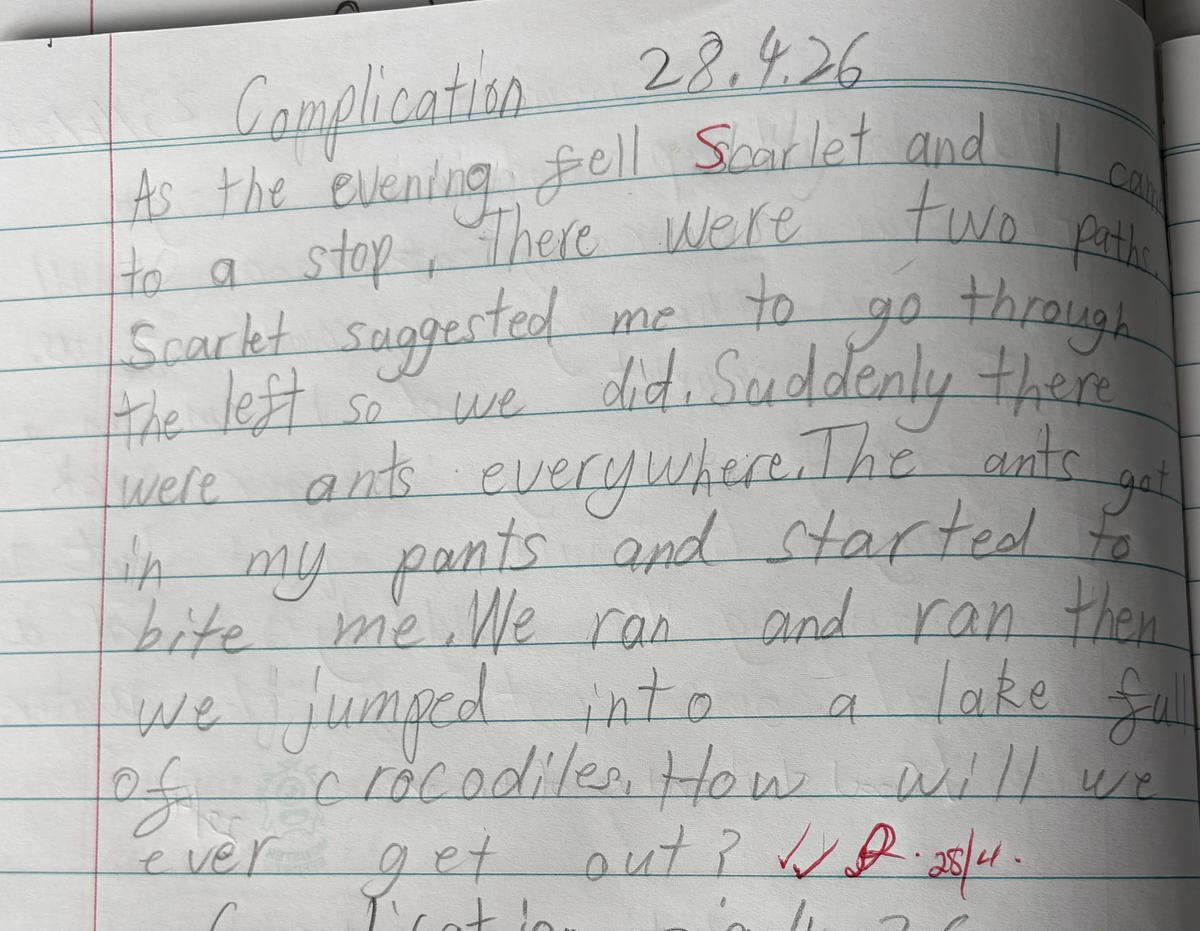 Complication 28.4.26
As the evening fell Scarlet and I
to a stop, There were two paths.
Scarlet suggested me to go through
the left so we did. Suddenly there
were ants everywhere. The ants got
in my pants and started to
bite me. We ran and ran then
we jumped into a lake full
of crocodiles. How will we
ever get out? 28/4.